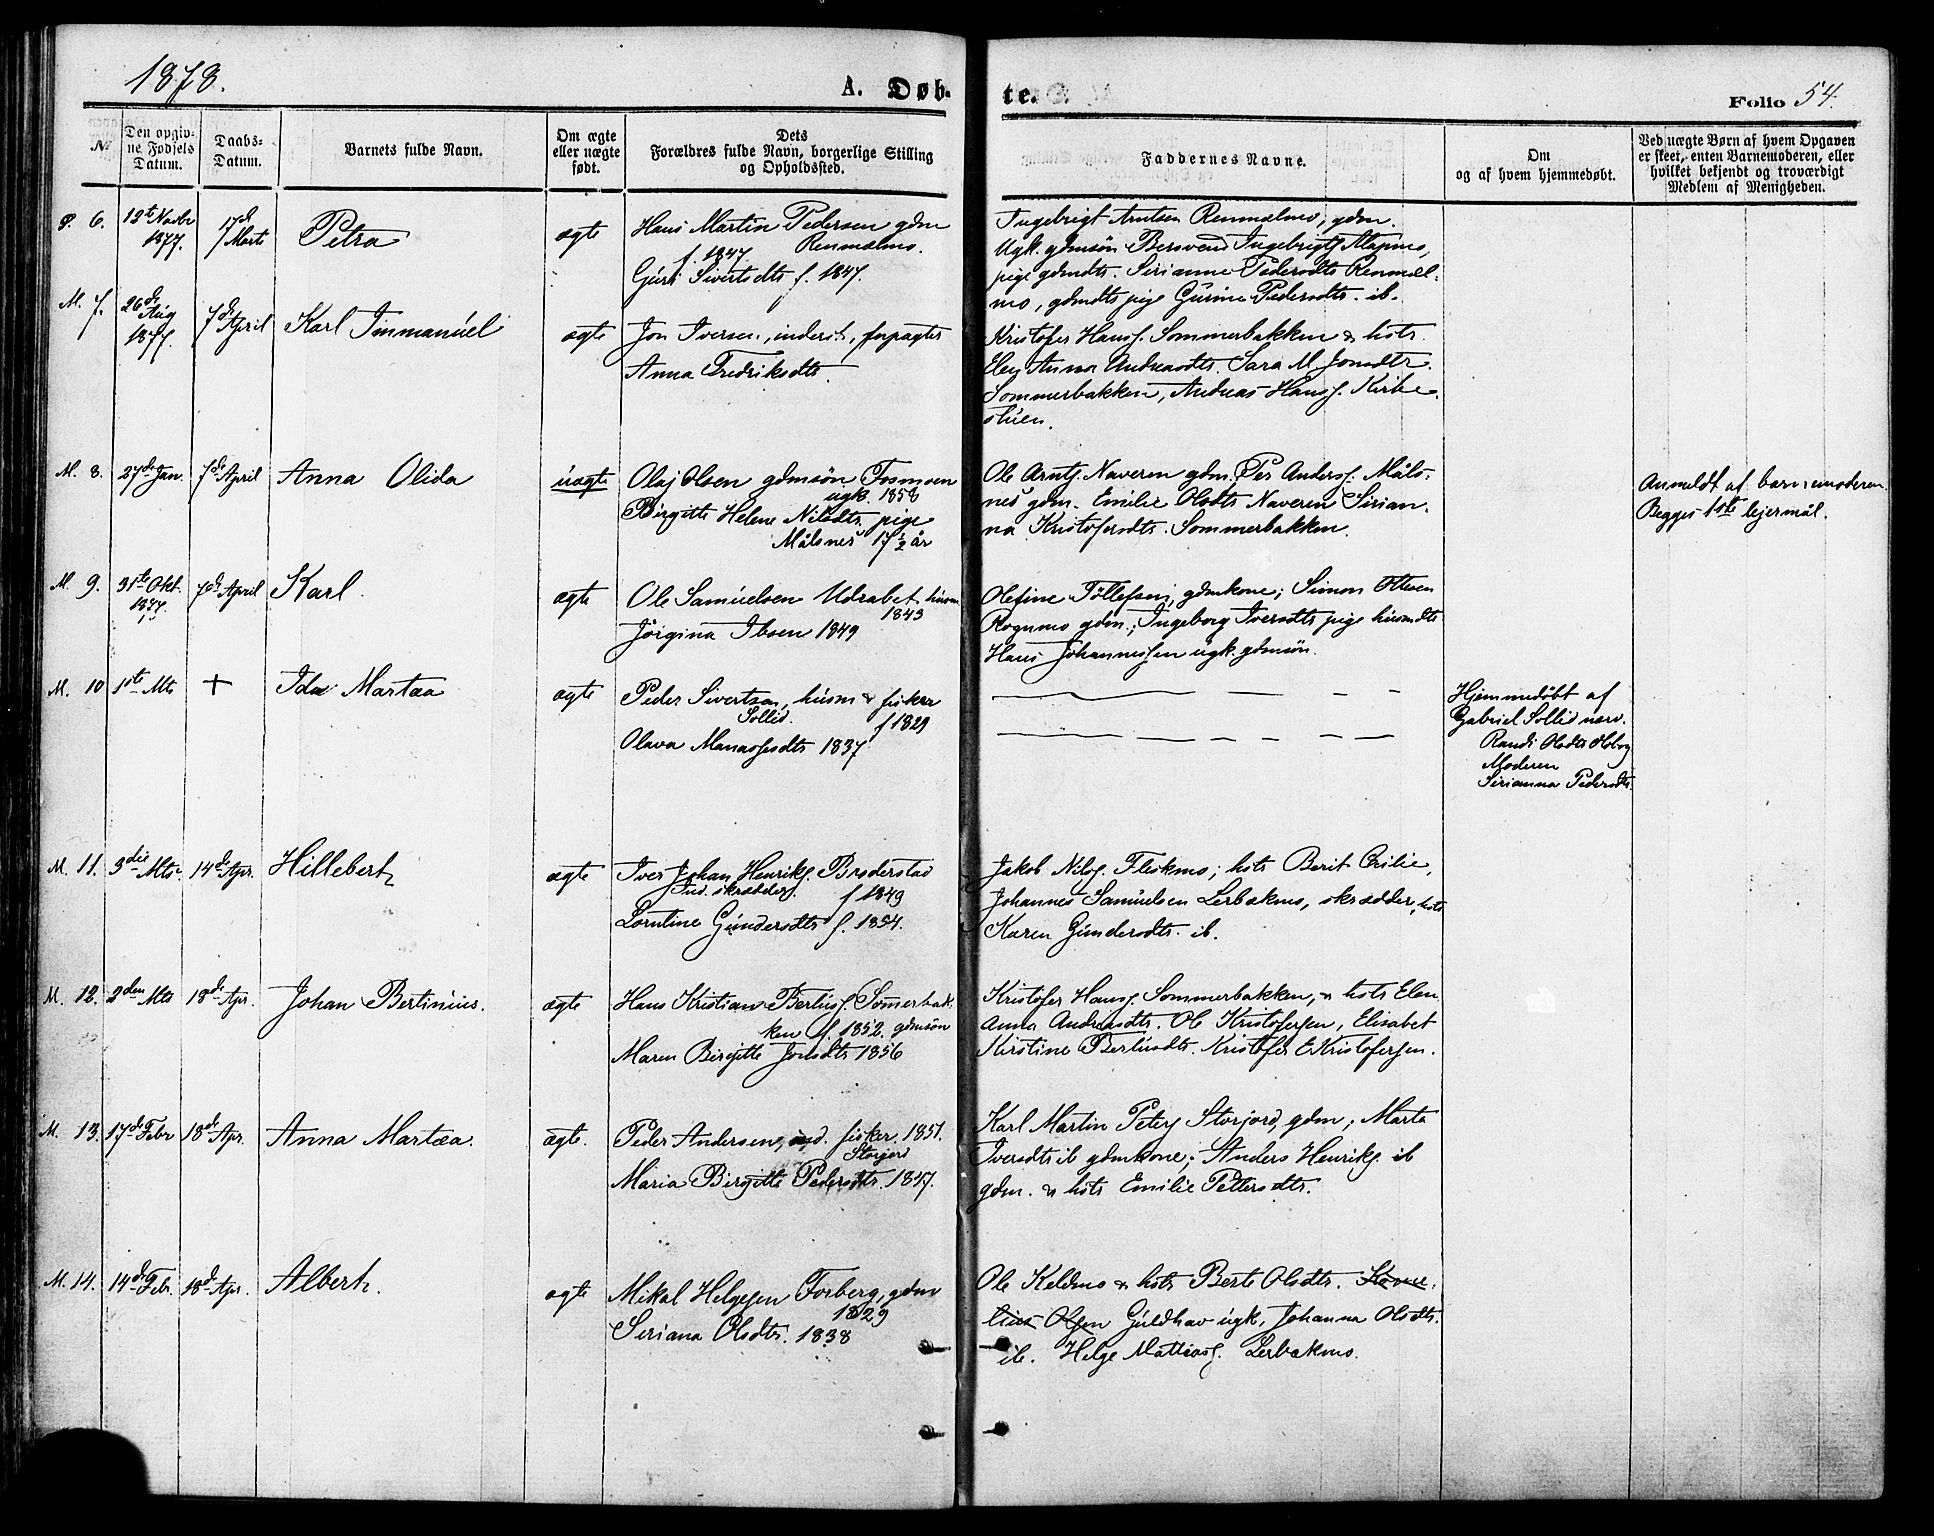 1878.
A. Døb-
te.
Folio 54.
№
Den opgiv-
ne Fødsels
Datum.
Daabs-
Datum.
Barnets fulde Navn.
Om ægte
eller uægte
født.
Dets
Forældres fulde Navn, borgerlige Stilling
og Opholdssted.
Faddernes Navne.
Om
og af hvem hjemmedøbt.
Ved uægte Børn af hvem Opgaven
er skeet, enten Barnemoderen, eller
hvilket bekjendt og troværdigt
Medlem af Menigheden.
6.
12te Novbr
1877.
17de
Marts
Petra
ægte
Hans Martin Pedersen gdm
Renmælmo.
f. 1847
Guri Sivertsdtr f. 1847.
Ingebrigt Arntsen Renmælmo, gdm.
Ugk. gdmsön Bersvend Ingebrigts. Alapmo,
pige gdmdtr. Sirianne Pedersdtr Renmæl-
mo, gdmdtr pige Gurine Pedersdtr. ib.
M. 7.
26de
Aug
1877.
7de April
Karl Immanuel
ægte
Jon Iversen, inderst, forpagter
Anna Fredriksdtr.
Kristofer Hanss. Sommerbakken & hstr.
Elen Anna Andreasdtr. Sara M. Jonsdtr.
Sommerbakken, Andreas Hanss. Kirke-
stuen.
M. 8.
27de Jan.
7de April
Anna Olida
uægte
Olaj Olsen gdmsön Fosmoen
ugk. 1858
Birgitte Helene Nilsdtr. pige
Målsnes 17 ½ år
Ole Arnts. Naveren gdm. Per Anderss. Måls-
nes gdm. Emilie Olsdtr Naveren Sirian-
na Kristofersdtr. Sommerbakken.
Anmeldt af barnemoderen.
Begges 1ste lejermål.
M. 9.
31te Okt.
1877.
7de April
Karl
ægte
Ole Samuelsen Udrabet husm
1843
Jörgina Ibsen 1849
Olefine Tollefsen, gdmkone; Simon Olsen
Rognmo gdm.; Ingeborg Iversdtr pige husmdtr
Hans Johannessen ugk. gdmsön.
M. 10
1ste Mts
+
Ida Martæa
ægte
Peder Sivertsen, husm & fisker
Sollid. f 1829
Olava Manassesdtr 1837
Hjemmedöbt af
Gabriel Sollid nærv.
Randi Olsdtr
Moderen
Sirianna Pedersdtr.
M. 11.
3die Mts.
14de Apr.
Hillebert
ægte
Iver Johan Henriks. Broderstad
Ind. skrædder. f 1849
Lorntine Gundersdtr f. 1854.
Jakob Nilss. Fleskmo; hstr Berit Cecilie,
Johannes Samuelsen Lerbækmo, skrædder, hstr
Karen Gundersdtr. ib.
M. 12.
2den Mts
18de Apr.
Johan Bertinius.
ægte
Hans Kristian Bertius. Sommerbak-
ken f. 1852. gdmsön
Maren Birgitte Jonsdtr 1856
Kristofer Hanss. Sommerbakken, & hstr Elen
Anna Andreasdtr. Ole Kristofersen, Elisabet
Kirstine Bertiusdtr. Kristofer E. Kristofersen.
M. 13.
17de Febr
18de Apr.
Anna Martæa.
ægte.
Peder Andersen, ind. fisker. 1851.
Storjord
Maria Birgitte Pedersdtr. 1847.
Karl Martin Peters. Storjord, gdm; Marta
Iversdtr ib gdmkone; Anders Henriks. ib
gdm. & hstr Emilie Pettersdtr.
M. 14.
14de Febr.
18de Apr.
Albert.
ægte
Mikal Helgesen Forberg, gdm
1829
Seriana Olsdtr. 1838
Ole Keldmo & hstr Berte Olsdtr. Korne-
lius Olsen Guldhav ugk, Johanna Olsdtr.
ib. Helge Mattiass. Lerbækmo.